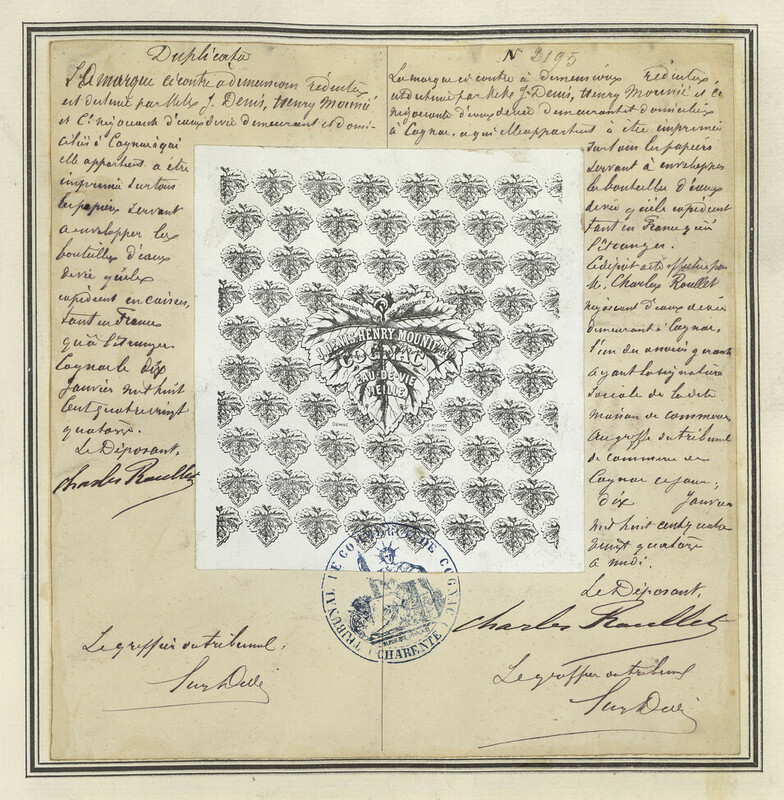 Duplicata
La marque ci contre à dimensions réduites,
est destinée par MM. J. Denis, Henry Mounié
et Cie négociants d'eaux de vie demeurant et domi-
ciliés à Cognac à qui
elle appartient a été
imprimée sur tous
les papiers servant
à envelopper les
bouteilles d'eaux
de vie qu'elles
expédient en caisses,
tant en France
qu'à l'étranger
Cognac le dix
Janvier mil huit
cent quatre vingt
quatorze.
Le Déposant,
Charles Roullet
Le greffier du tribunal,
N 2195
La marque ci contre à dimensions réduites,
est destinée par MM. J. Denis, Henry Mounié et Cie
négociants d'eaux de vie demeurant et domiciliés
à Cognac, a qui elle appartient à être imprimée
sur tous les papiers
servant à envelopper
les bouteilles d'eaux
de vie qu'elle expédient
tant en France qu'à
l'étranger.
Ce dépôt a été effectué par
M. Charles Roullet
négociant d'eaux de vie
demeurant à Cognac,
l'un des associés gérants
ayant la signature
sociale de la dite
maison de commerce
au greffe du tribunal
de commerce de
Cognac ce jour,
dix Janvier
mil huit cent quatre
vingt quatorze
à midi.
Le Déposant,
Charles Roullet
Le greffier du tribunal
J. DENIS, HENRY MOUNIÉ & Co
COGNAC
EAU-DE-VIE
VIEILLE
DÉPOSÉ
TRIBUNAL DE COMMERCE DE COGNAC
(CHARENTE)